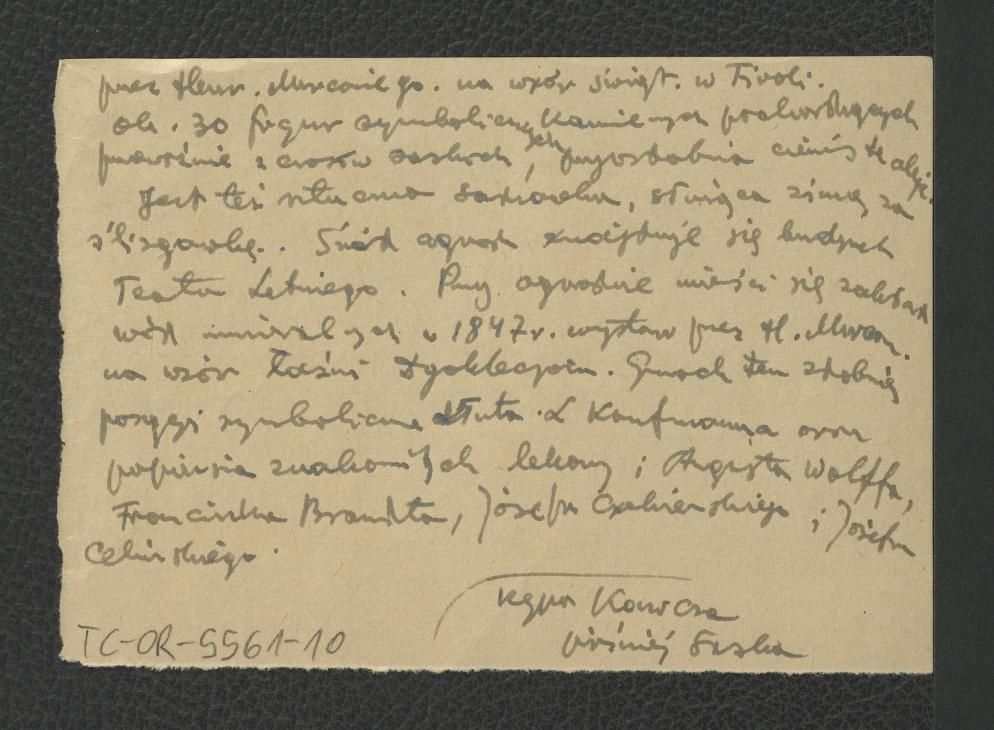 przez Henr. Marconiego. na wzór świąt. w Tivoli.
ok. 30 figur symbolicznych kamiennych podwórzujących
przeważnie z czasów saskich, przyozdabia cieniste aleje.
Jest też sztuczna sadzawka, służąca zimą za
ślizgawkę. Śród ogrodu znajduje się budynek
Teatru Letniego. Przy ogrodzie mieści się zakład
wód mineralnych w 1847 r. wystaw przez H. Marcon.
na wzór Łaźni Dyoklecjan. Gmach ten zdobią
posągi symboliczne dłuta L Kaufmanna oraz
popiersia znakomitych lekarzy: Augusta Wolffa,
Franciszka Brandta, Józefa Czekierskiego i Józefa
Celińskiego.
Kępa Kawcza
później Saska
TC-OR-5561-10